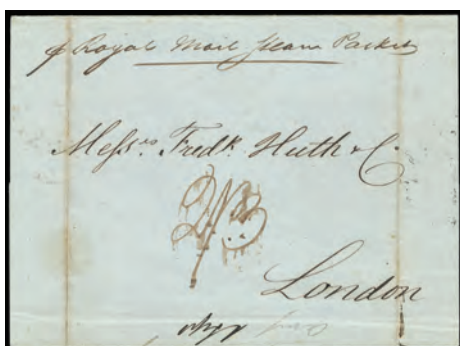 p Royal Mail Steam Packet
Messrs. Fredk. Huth & Co.
2/3
London